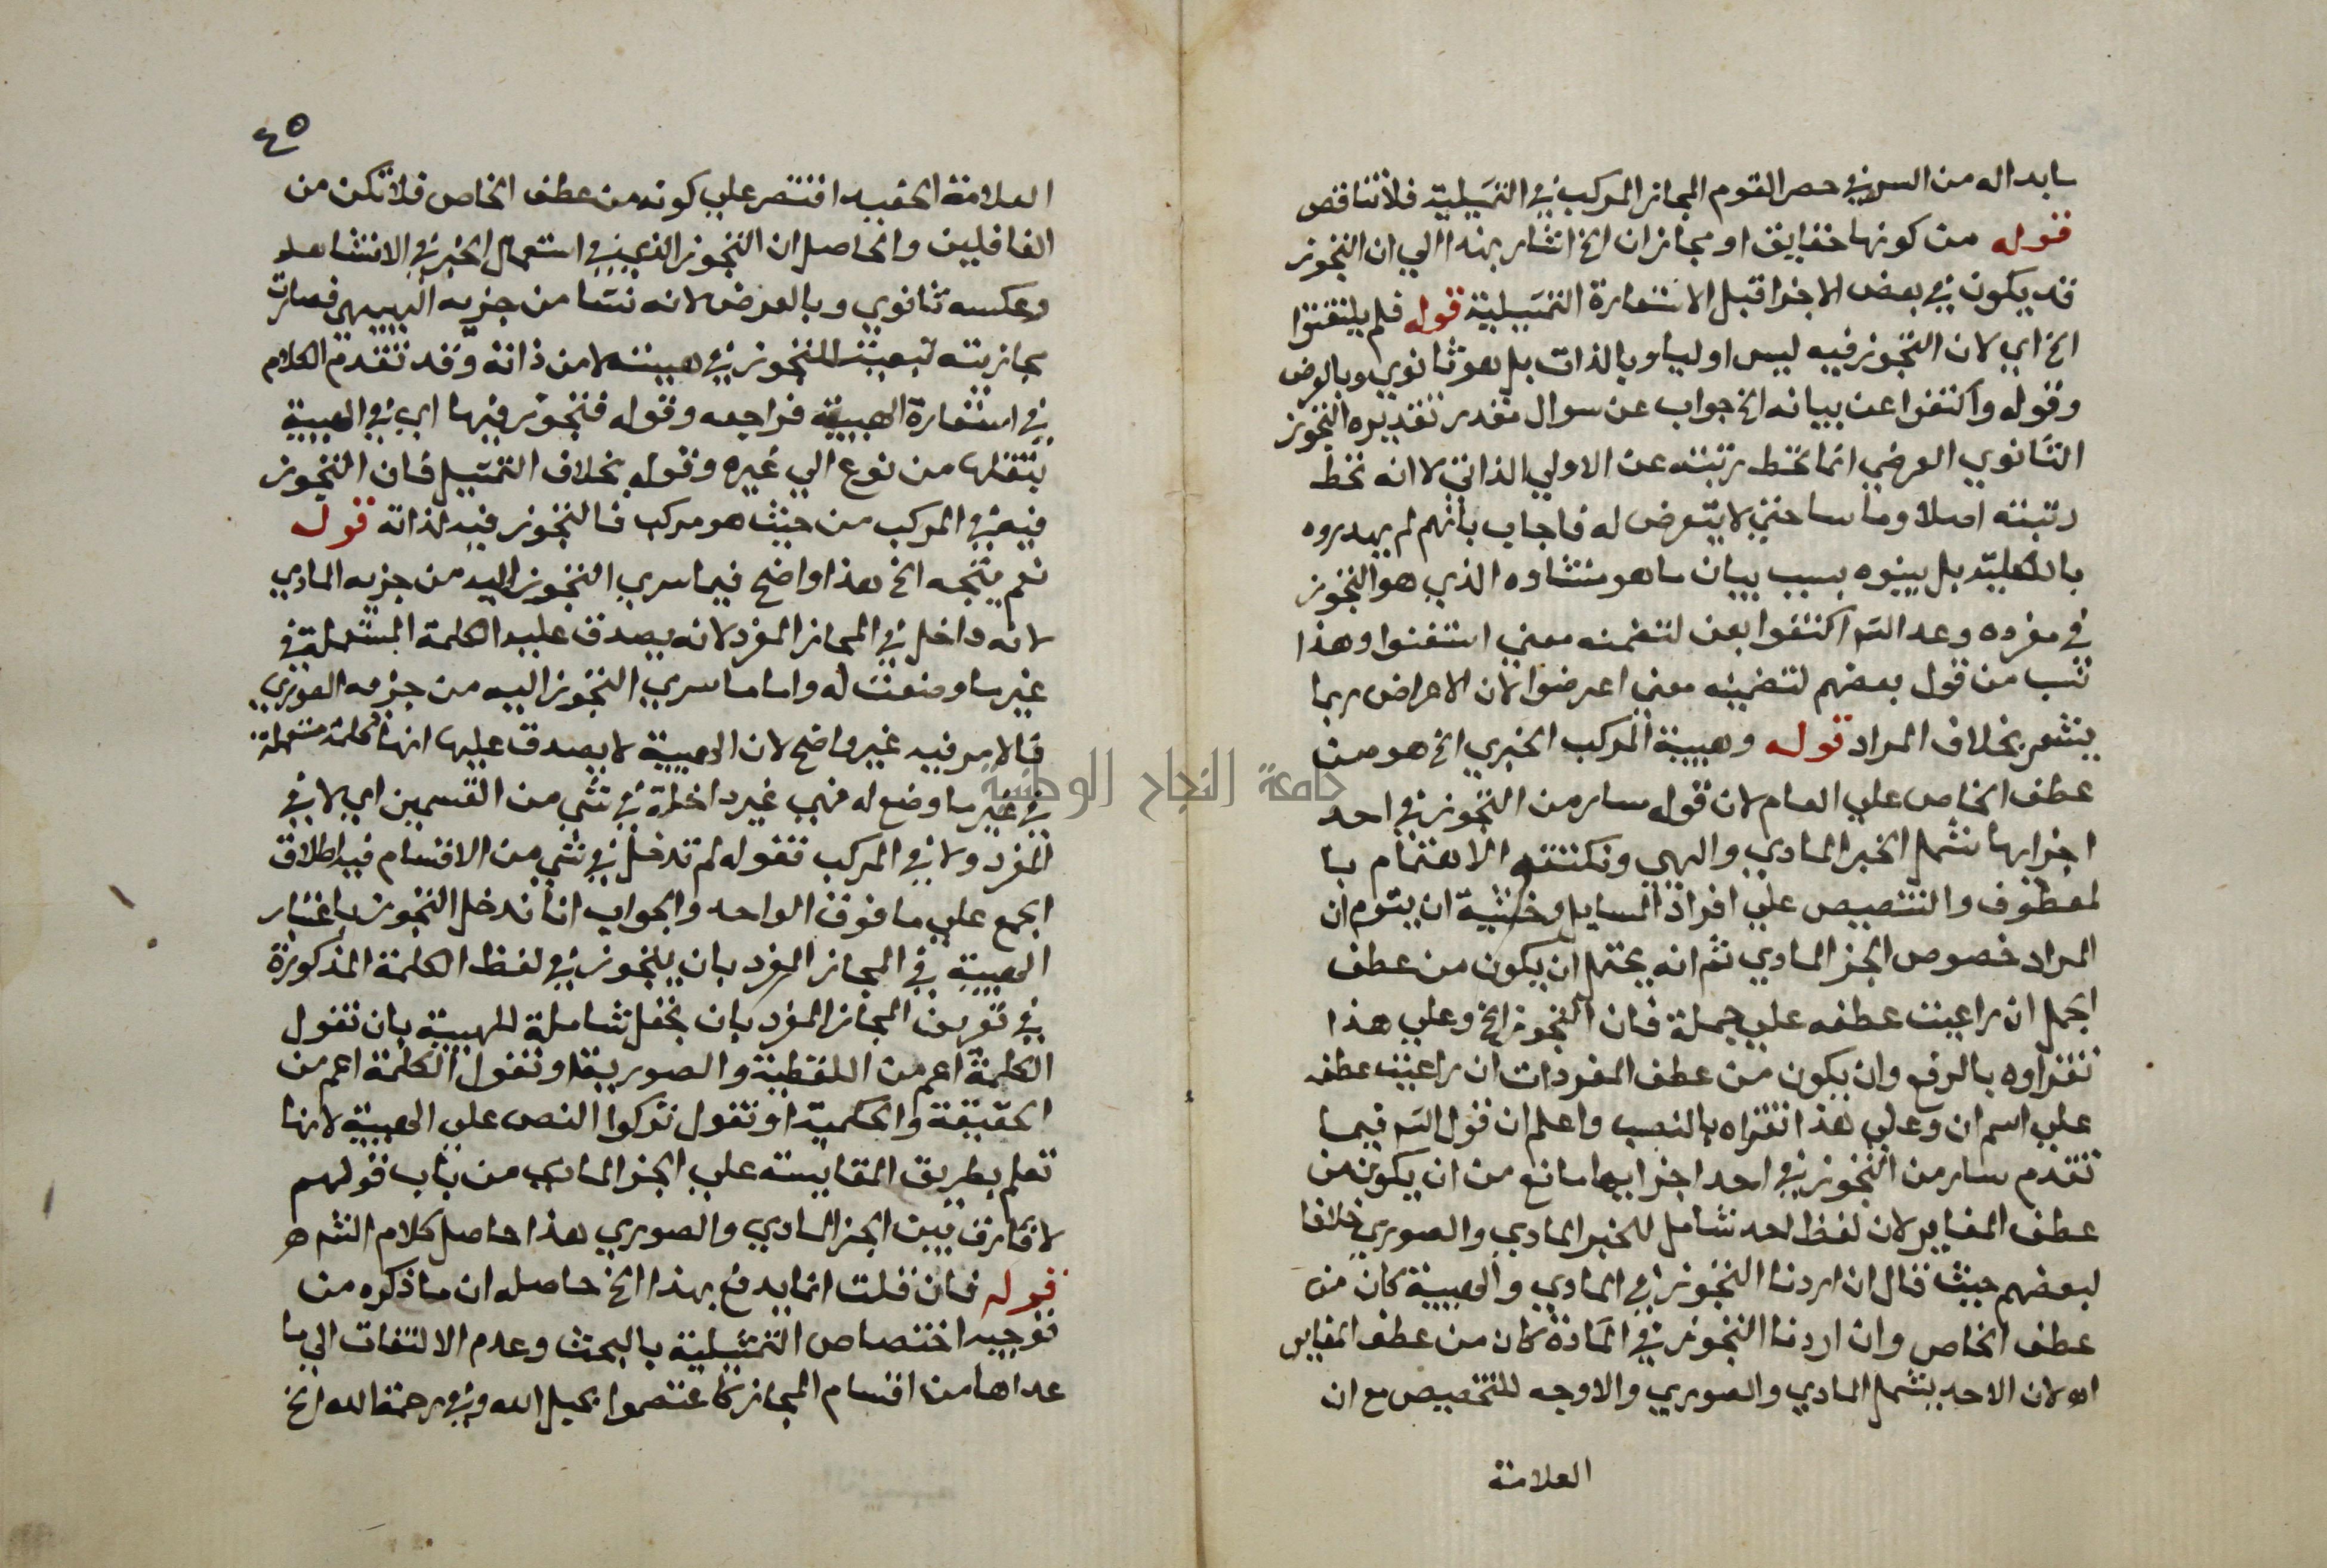 ما بداله من السر في حصر القوم المجاز المركب في التمثيلية فلا تناقض
قوله من كونها حقايق او مجازات الخ اشار بهذا الي ان التجوز
قد يكون في بعض الاجزا قبل الاستعارة التمثيلية قوله فلم يلتفتوا
الخ اي لان التجوز فيه ليس اوليا وبالذات بل هو ثانوي وبالعرض
وقوله واكتفوا عن بيانه الخ جواب عن سوال مقدر تقديره التجوز
الثانوي العرضي انما تحط رتبته عن الاولي الذاتي لا انه تحط
رتبته اصلا وراسا حتي لا يتعرض له فاجاب بانهم لم يهدروه
بالكلية بل بينوه بسبب بيان ما هو منشاوه الذي هو التجوز
في مفرده وعدا الش اكتفوا بعن لتضمنه معني استغنوا وهذا
انسب من قول بعضهم لتضمينه معني اعرضوا لان الاعراض ربما
يشعر بخلاف المراد قوله وهيية المركب الخبري الخ هو من
عطف الخاص علي العام لان قوله سابر من التجوز في احد
اجزايها شمل الخبر المادي والهيي ونكتته الاهتمام با
لمعطوف والتنصيص علي افراد المسايل وخشية ان يتوهم ان
المراد خصوص الجز المادي ثم انه يحتمل ان يكون من عطف
الجمل ان راعيت عطفه علي جملة فان التجوز الخ وعلي هذا
تقراوه بالرفع وان يكون من عطف المفردات ان راعيت عطفه
علي اسم ان وعلي هذا تقراه بالنصب واعلم ان قول الش فيما
تقدم سابر من التجوز في احد اجزايها مانع من ان يكون من
عطف المغاير لان لفظ احد شامل للخبر المادي والصوري خلافا
لبعضهم حيث قال ان اردنا التجوز في المادي والهيية كان من
عطف الخاص وان اردنا التجوز في المادة كان من عطف المغاير
اه لان الاحد يشمل المادي والصوري والاوجه للتخصيص مع ان
العلامة
٤٥
العلامة الحفيد اقتصر علي كونه من عطف الخاص فلا تكن من
الغافلين والحاصل ان التجوز الذي في استعمال الخبر في الانشا
وعكسه ثانوي وبالعرض لانه نشا من جزيه الهيي فصارت
مجازيته تبعية للتجوز في هييته لا من ذاته وقد تقدم الكلام
في استعارة الهيية فراجعه وقوله فتجوز فيها اي في الهيية
بنقلها من نوع الي غيره وقوله بخلاف التمثيل فان التجوز
فيه في المركب من حيث هو مركب فالتجوز فيه لذاته قوله
نعم يتجه الخ هذا واضح فيما سري التجوز اليه من جزيه المادي
لانه داخل في المجاز المفرد لانه يصدق عليه الكلمة المستعملة في
غير ما وضعت له واما ما سري التجوز اليه من جزيه الصوري
فالامر فيه غير واضح لان الهيية لا يصدق عليها انها كلمة مستعملة
في غير ما وضع له فهي غير داخلة في شي من القسمين اي لا في
المفرد ولا في المركب فقوله لم تدخل في شي من الاقسام فيه اطلاق
الجمع علي ما فوق الواحد والجواب انا ندخل التجوز باعتبار
الهيية في المجاز المفرد بان يتجوز في لفظ الكلمة المذكورة
في تعريف المجاز المفرد بان تجعل شاملة للهيية بان تقول
الكلمة اعم من اللفظية والصورية او تقول الكلمة اعم من
الحقيقة والحكمية او تقول تركوا النص علي الهيية لانها
تعلم بطريق المقايسة علي الجز المادي من باب قولهم
لا فارق بين الجز المادي والصوري هذا حاصل كلام الش ه
قوله فان قلت انما يدفع بهذا الخ حاصله ان ما ذكره من
توجيه اختصاص التمثيلية بالبحث وعدم الالتفات الي ما
عداها من اقسام المجاز كاعتصموا بحبل الله وفي رحمة الله الخ
جامعة النجاح الوطنية